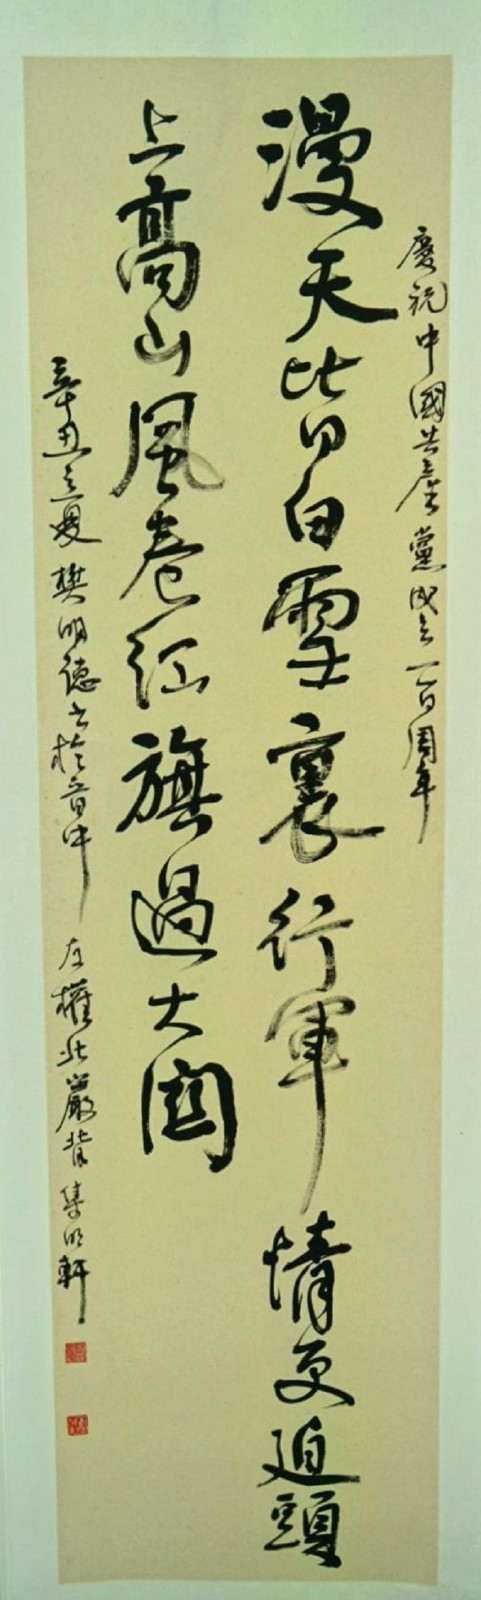 慶祝中國共產黨成立一百周年
漫天皆白雪裏行軍情更迫頭
上高山風卷紅旗過大関
辛丑立夏樊明德書於晉中左權北巖背集明軒